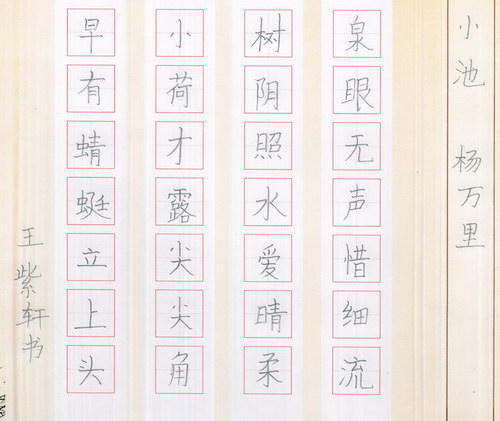 小池 杨万里
泉眼无声惜细流
树阴照水爱晴柔
小荷才露尖尖角
早有蜻蜓立上头
王紫轩书